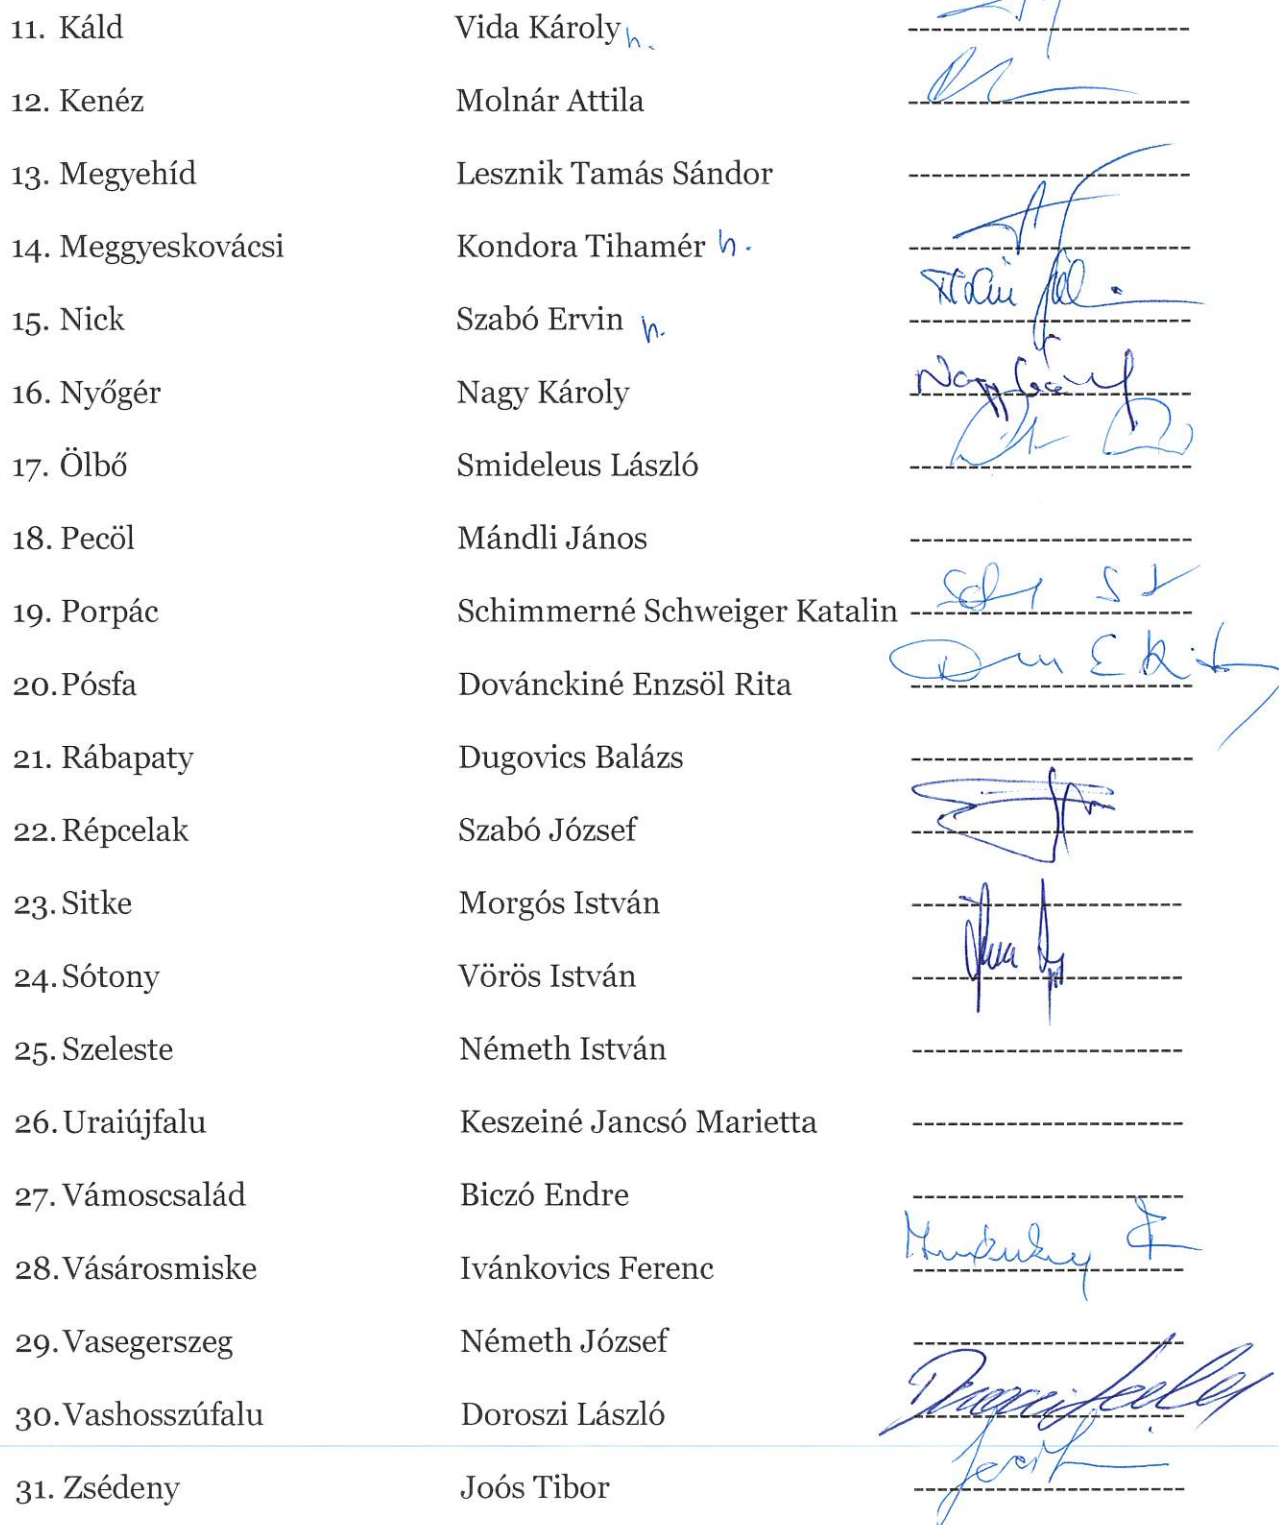 11. Káld Vida Károly h.
12. Kenéz Molnár Attila
13. Megyehíd Lesznik Tamás Sándor
14. Meggyeskovácsi Kondora Tihamér h.
15. Nick Szabó Ervin h.
16. Nyőgér Nagy Károly Nagy Károly
17. Ölbő Smideleus László
18. Pecöl Mándli János
19. Porpác Schimmerné Schweiger Katalin
20. Pósfa Dovánckiné Enzsöl Rita
21. Rábapaty Dugovics Balázs
22. Répcelak Szabó József
23. Sitke Morgós István
24. Sótony Vörös István
25. Szeleste Németh István
26. Uraiújfalu Keszeiné Jancsó Marietta
27. Vámoscsalád Biczó Endre
28. Vásárosmiske Ivánkovics Ferenc
29. Vasegerszeg Németh József
30. Vashosszúfalu Doroszi László
31. Zsédeny Joós Tibor